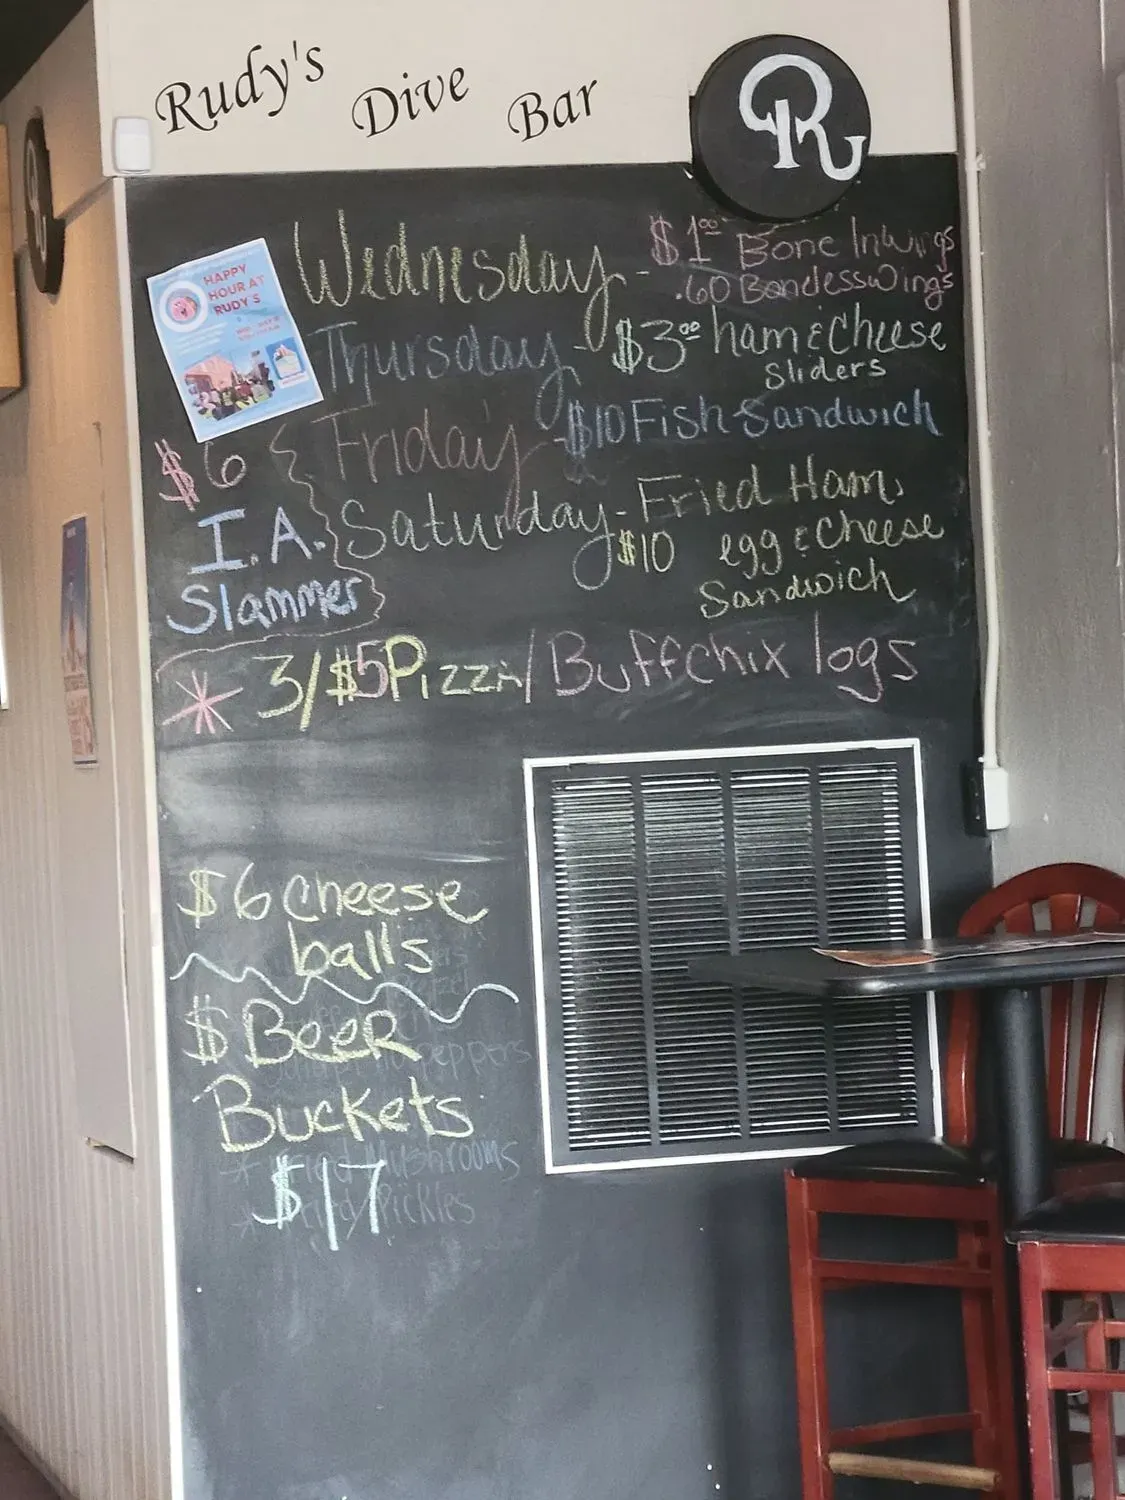 Rudy's Dive Bar
R
HAPPY
HOUR AT
RUDY'S
Wednesday - $1.00 Bone In Wings
.60 Bonelesswings
Thursday - $3.00 ham & Cheese
Sliders
Friday - $10 Fish Sandwich
Saturday - Fried Ham
$10 egg & cheese
Sandwich
$6
I.A.
Slammer
* 3/$5 Pizza/Buffchix logs
$6 cheese
balls
$ Beer
Buckets
$17
peppers
* Fried Mushrooms
* Fried Pickles